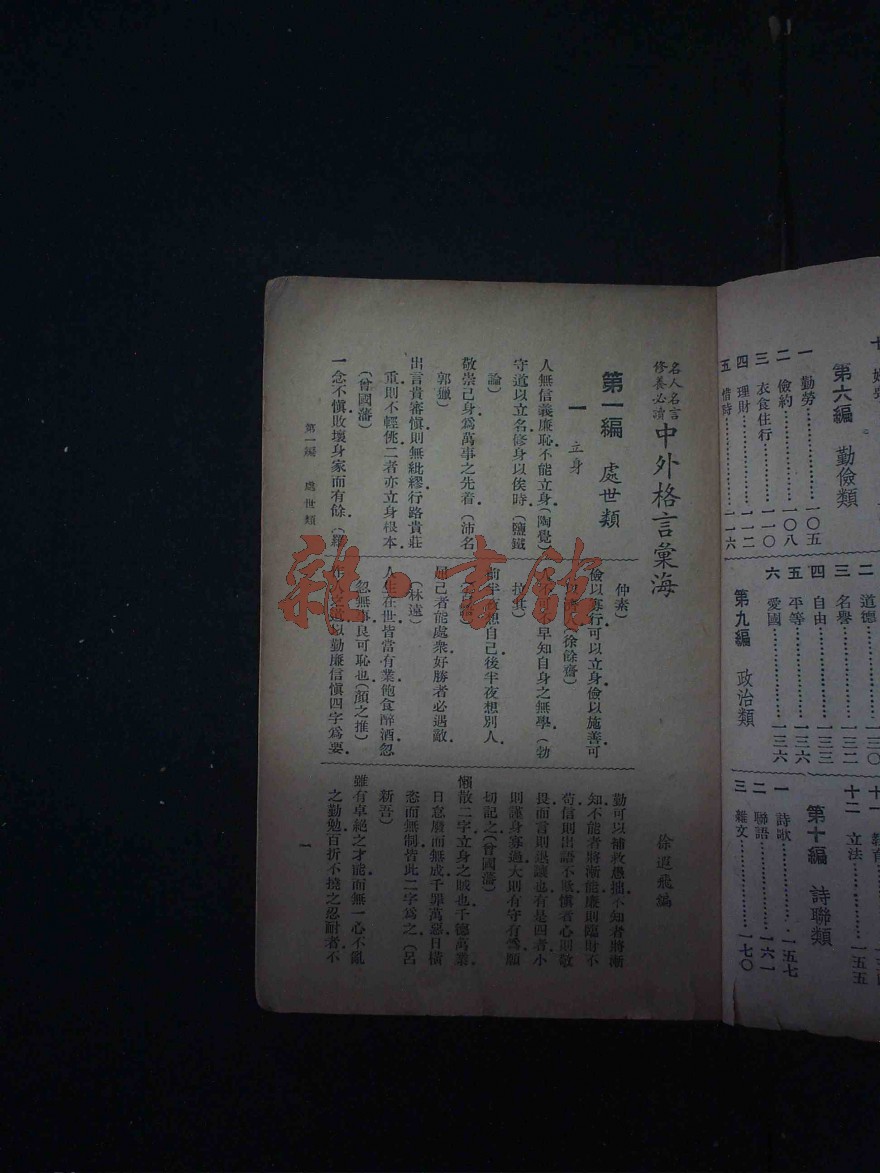 十
第六編　勤儉類
一　勤勞…………一〇五
二　儉約…………一〇八
三　衣食住行…………一一〇
四　理財…………一一二
五　惜時…………一一六
二　道德
三　名譽…………一三二
四　自由…………一三三
五　平等…………一三六
六　愛國…………一三六
第九編　政治類
十二　立法…………一五五
第十編　詩聯類
一　詩歌…………一五七
二　聯語…………一六一
三　雜文…………一七〇
名人名言
修養必讀
中外格言彙海
徐道飛編
第一編　處世類
一　立身
人無信義廉恥不能立身（陶覺）
守道以立名修身以俟時（鹽鐵
論）
敬崇己身爲萬事之先着（沛名
郭獵）
出言貴審愼則無紕繆行路貴莊
重則不輕佻二者亦立身根本
（曾國藩）
一念不愼敗壞身家而有餘（羅
仲素）
儉以寡行可以立身儉以施善可
（徐餘齋）
早知自身之無學（勃
拉其）
前半夜想自己後半夜想別人
屈己者能處衆好勝者必遇敵
（林逺）
人生在世皆當有業飽食醉酒忽
忽無事良可恥也（顏之推）
以勤廉信愼四字爲要
勤可以補救愚拙不知者將漸
知不能者將漸能廉則臨財不
苟信則出語不欺愼者心則敬
畏而言則退讓也有是四者小
則謹身寡過大則有守有爲願
切記之（曾國藩）
懶散二字立身之賊也千德萬業
日怠廢而無成千罪萬惡日橫
恣而無制皆此二字爲之（呂
新吾）
雖有卓絶之才能而無一心不亂
之勤勉百折不撓之忍耐者不
第一編　處世類
一
雜·書館